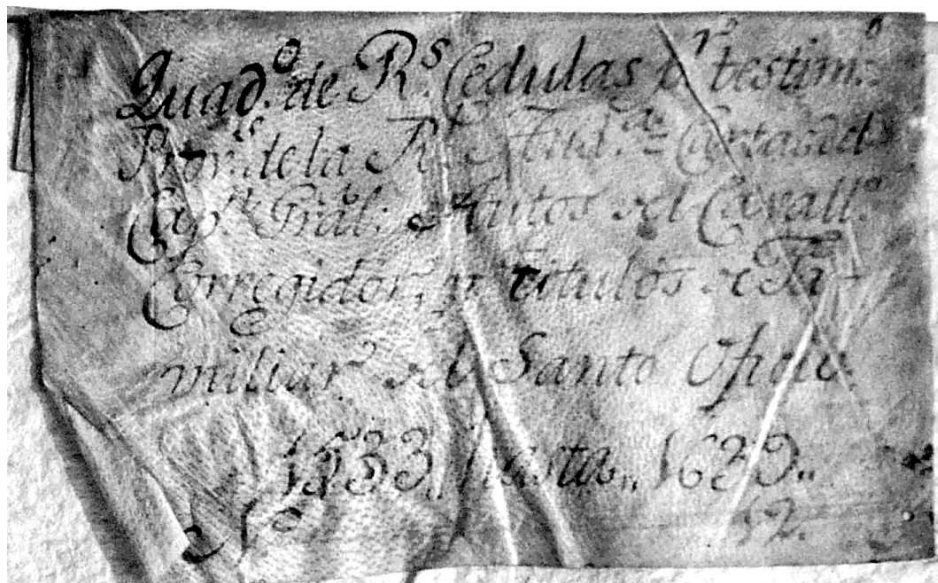 Quad.º de R.s Cedulas p.r testim.º
Prov.s de la R.l Aud.a Cartas del
Cap.n Grãl: Autos del Cavall.º
Corregidor, y titulos de Fa-
miliar.s del Santo Oficio.
1533,, hasta,, 1639,,
Nº 12.